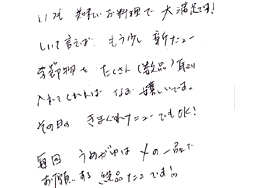 いつも 美味しいお料理で 大満足です!
しいて言えば、もう少し 新メニュー
季節物を たくさん(数品)取り
入れてくれれば なお嬉しいです。
その日の きまぐれメニューでもOK!
毎回 うめ は 〆の一品で
お願いする 絶品 です!!